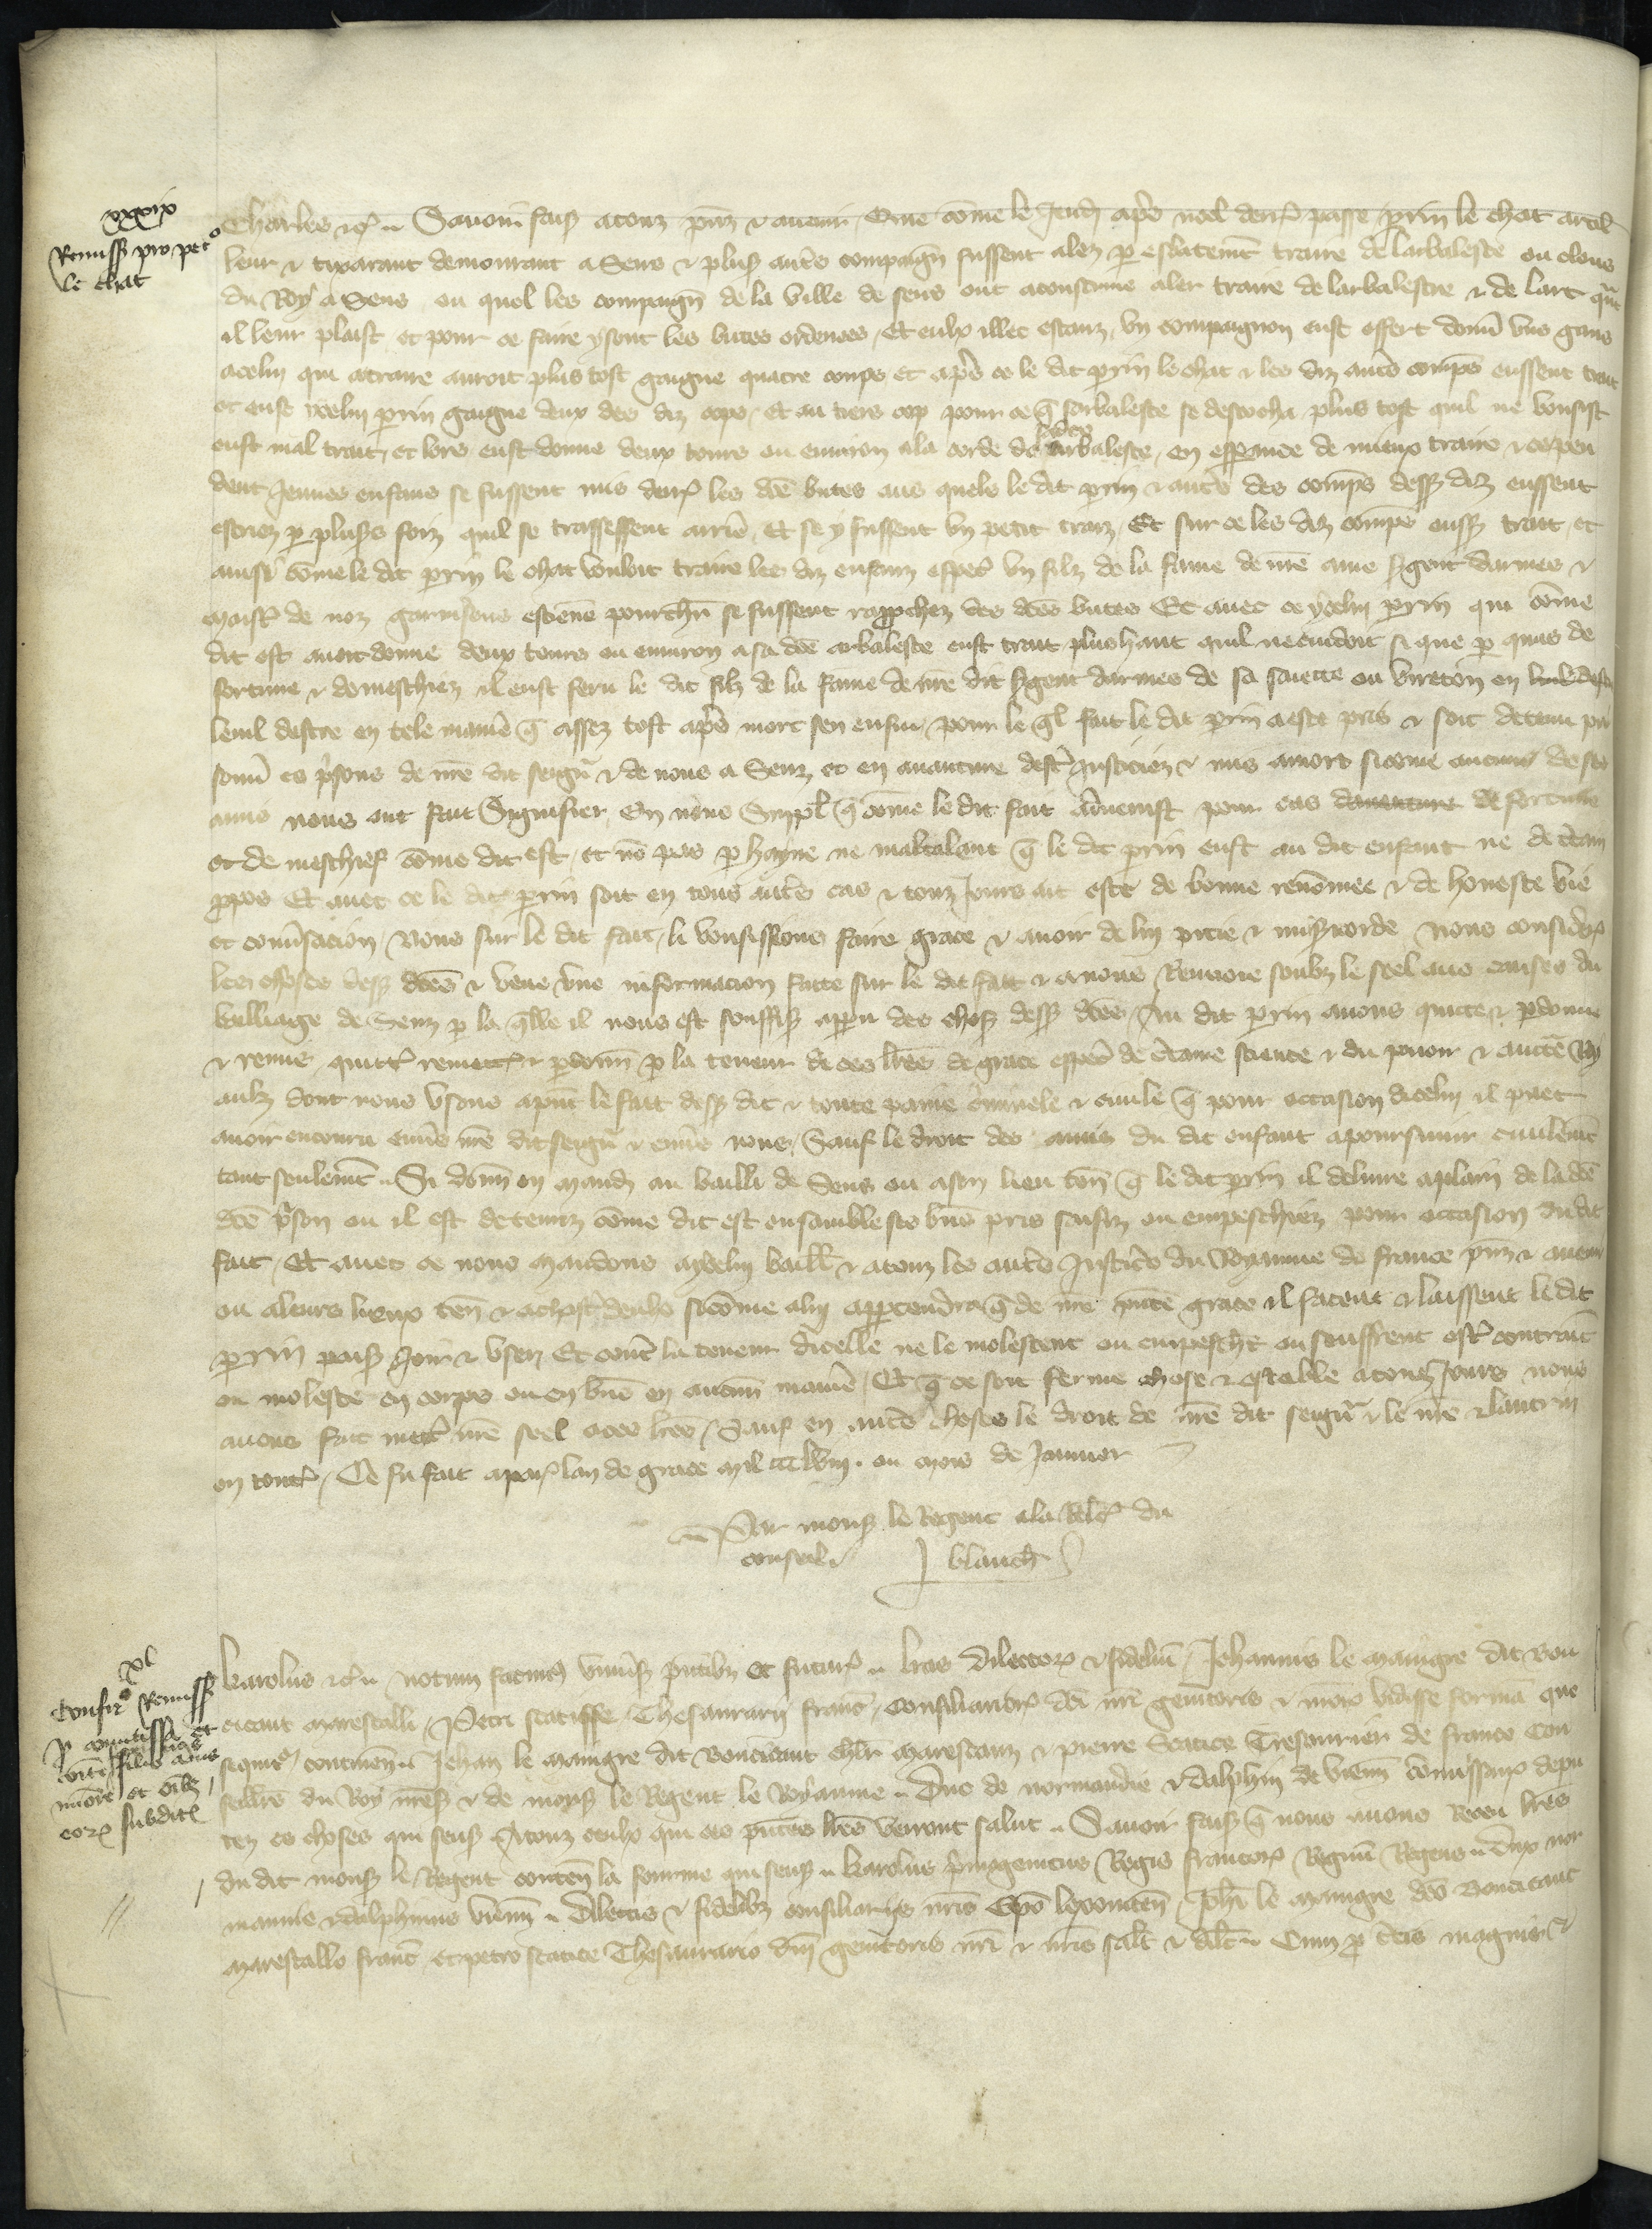 xxxix
Remiss pro petro
le chat
Charles etc. Savoir fais a touz pns et avenir Que come le Jeudi apres noel dern passe perrin le chat artil
leur et tixarant demourant a Sens et plus autres compaign fussent alez p esbatemt traire de larbaleste ou clous
du Roy a Sens ou quel les compaign de la ville de sens ont acoustume aler traire de larbalestre et de larc qnt
il leur plaist et pour ce faire y sont les butes ordenees Et eulx illec estanz un compaignon eust offert donner uns gans
a celui qui a traire auroit plus tost gaigne quatre coups et apres ce le dit perrin le chat et les diz autres comps eussent trait
et eust icelui perrin gaigne deux des diz cops Et au tiers cop pour ce q larbaleste se descocha plus tost quil ne vousist
eust mal trait et lors eust donne deux tours ou environ a la corde de ladce arbaleste en esperance de mieux traire et ce pen
dent Jeunes enfans se fussent mis derr les dces butes aus quels le dit perrin et autres des comps dess diz eussent
escriez p plusrs foiz quil se traissessent arrie Et se y fussent un petit traiz Et sur ce les diz comps eussent trait et
ainsi come le dit perrin le chat vouloit traire les diz enfanz especial un filz de la fame de nre ame sgent darmes et
maistre de noz garnisons estienne se fussent rapprochez des dces butes Et avec ce ycelui perrin qui come
dit est avoit donne deux tours ou environ a sa dce arbaleste eust trait plus haut quil ne cuidoit si que p quas de
fortune et de meschiez il eust feru le dit filz de la fame de nre dit sgent darmes de sa saiette ou vireton en
leuil destre en tele manie q assez tost apres mort sen ensui pour le ql fait le dit perrin a este pris et soit detenu pri
sonn es prisons de nre dit seigr et de nous a Senz et en aventure destre Justiciez et mis a mort sicome aucuns de ses
amis nous ont fait Signifier En nous Suppl q come le dit fait avenist pour cas daventure de fortune
et de meschief come dit est et non pas p hayne ne maltalent q le dit perrin eust au dit enfant ne de certain
propos Et avec ce le dit perrin soit en tous autres cas et touz Jours ait este de bonne renommee et de honeste vie
et conversacion Nous sur le dit fait li vousissions faire grace et avoir de lui pitie et misericorde Nous consider
les choses dess dces et veue une informacion faite sur le dit fait et a nous Renvoie soubz le seel aus causes du
bailliage de Senz p la qlle il nous est souffis apparu des choses dess dces Au dit perrin avons quitte et pdonne
et remis quitt remett et pdonn p la teneur de ces lres de grace especial de certaine science et du povoir et aucte Roy
aulx dont nous usons a pnt le fait dess dit et toute paine criminele et civile q pour occasion dicelui il puet
avoir encouru envs nre dit seigr et envs nous Sauf le droit des amis du dit enfant a poursuivir civilemt
tant seulemt Si donn en mandem au bailli de Sens ou a son lieu ten q le dit perrin il delivre a plain de la dce
dce prison ou il est detenuz come dit est ensamble ses biens pris saisiz ou empeschiez pour occasion du dit
fait Et avec ce nous mandons a ycelui bailli et a touz les autres Justiciers du Royaume de france pns et avenir
ou a leurs lieux ten et a chascun deulx sicome a lui appartendra q de nre pnte grace il facent et laissent le dit
perrin paisib Joir et user Et contre la teneur dicelle ne le molestent ou empeschent ou seuffrent estre contraint
ou moleste en corps ou en biens en aucun manie Et q ce soit ferme chose et estable a touz Jours nous
avons fait mettre nre seel a ces lres Sauf en autres choses le droit de nre dit seigr et le nre et lautrui
en tout Ce fu fait a paris lan de grace mil ccclviii ou mois de Janvier
Par mons le Regent a la relacion du
conseil J blanch
xl
Confir Remiss
p comitissa et
filio suo
minore et oibz
eorum subdit
Karolus etc. notum facimus universis pntibz et futur lras Dilector et fidelium Johannis le maingre dit Bou
cicaut marescalli Petri scatisse Thesaurarii franc Consiliarior dni nri genitoris et nros vidisse formam que
sequitur continen Jehan le maingre dit Boucicaut chlr mareschaux et pierre Scatice Tresaurier de france Con
seillers du Roy nres et de mons le Regent le Royaume Duc de normandie et dalphin de vienn Commissaires depu
tez es choses qui sens A touz ceulx qui ces pntes lres verront salut Savoir fais q nous avons Receu lres
du dit mons le Regent conten la fourme qui sens Karolus primogenitus Regis francor Regnum Regens Dux nor
mannie et dalphinus vienn Dilectis et fidelibz consiliariis nris Epo lexovien Johi le maingre dco Boucicaut
marescallo franc et petro scatice Thesaurario dni genitoris nri et nris salt et dilc Cum p dcis magnis et